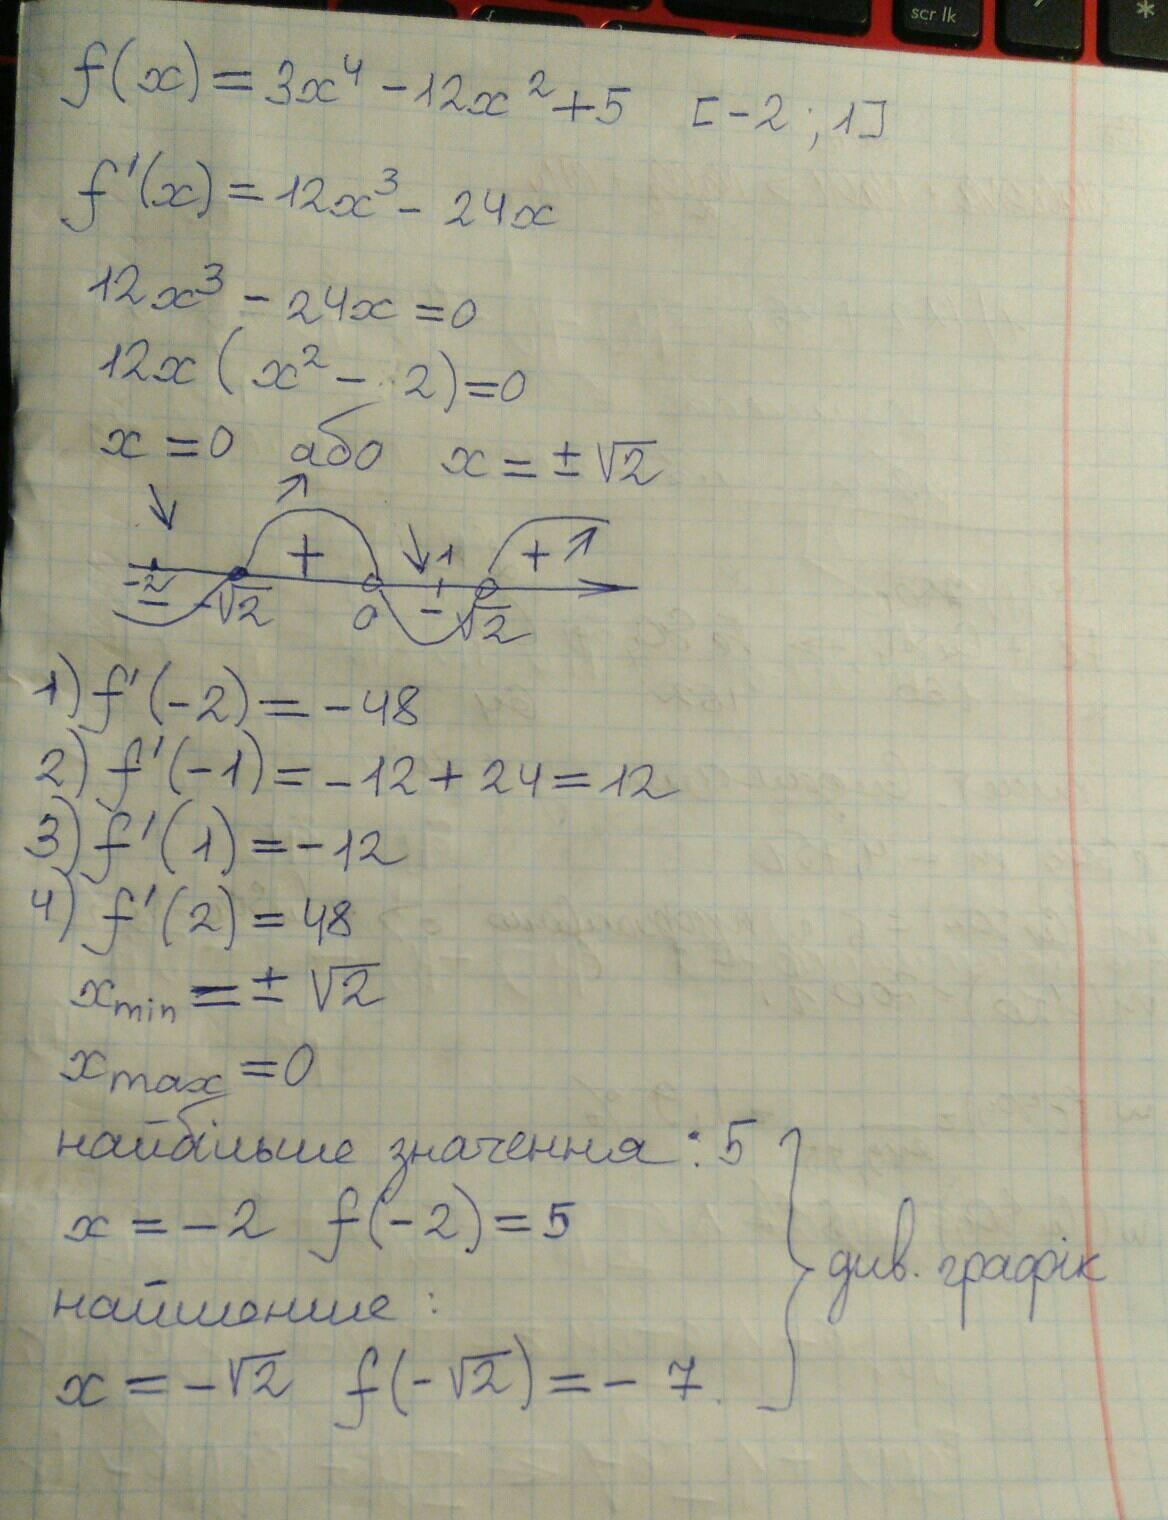 scr lk
*
f(x) = 3x⁴ - 12x² + 5 [-2 ; 1]
f'(x) = 12x³ - 24x
12x³ - 24x = 0
12x ( x² - 2 ) = 0
x = 0 або x = ± √2
↘ ↗ + ↘ 1 + ↗
-2 - -√2 0 - √2
1) f'(-2) = -48
2) f'(-1) = -12 + 24 = 12
3) f'(1) = -12
4) f'(2) = 48
x min = ± √2
x max = 0
найбільше значення : 5
x = -2 f(-2) = 5
найменше :
x = -√2 f(-√2) = - 7.
} див. графік